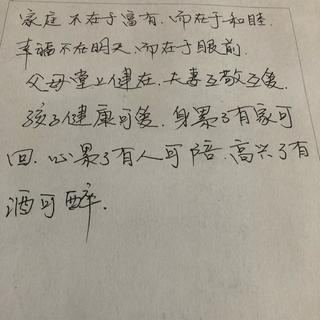 家庭不在于富有、而在于和睦.
幸福不在明天、而在于眼前.
父母堂上健在、夫妻互敬互爱.
孩子健康可爱、身累了有家可
回、心累了有人可陪、高兴了有
酒可醉.